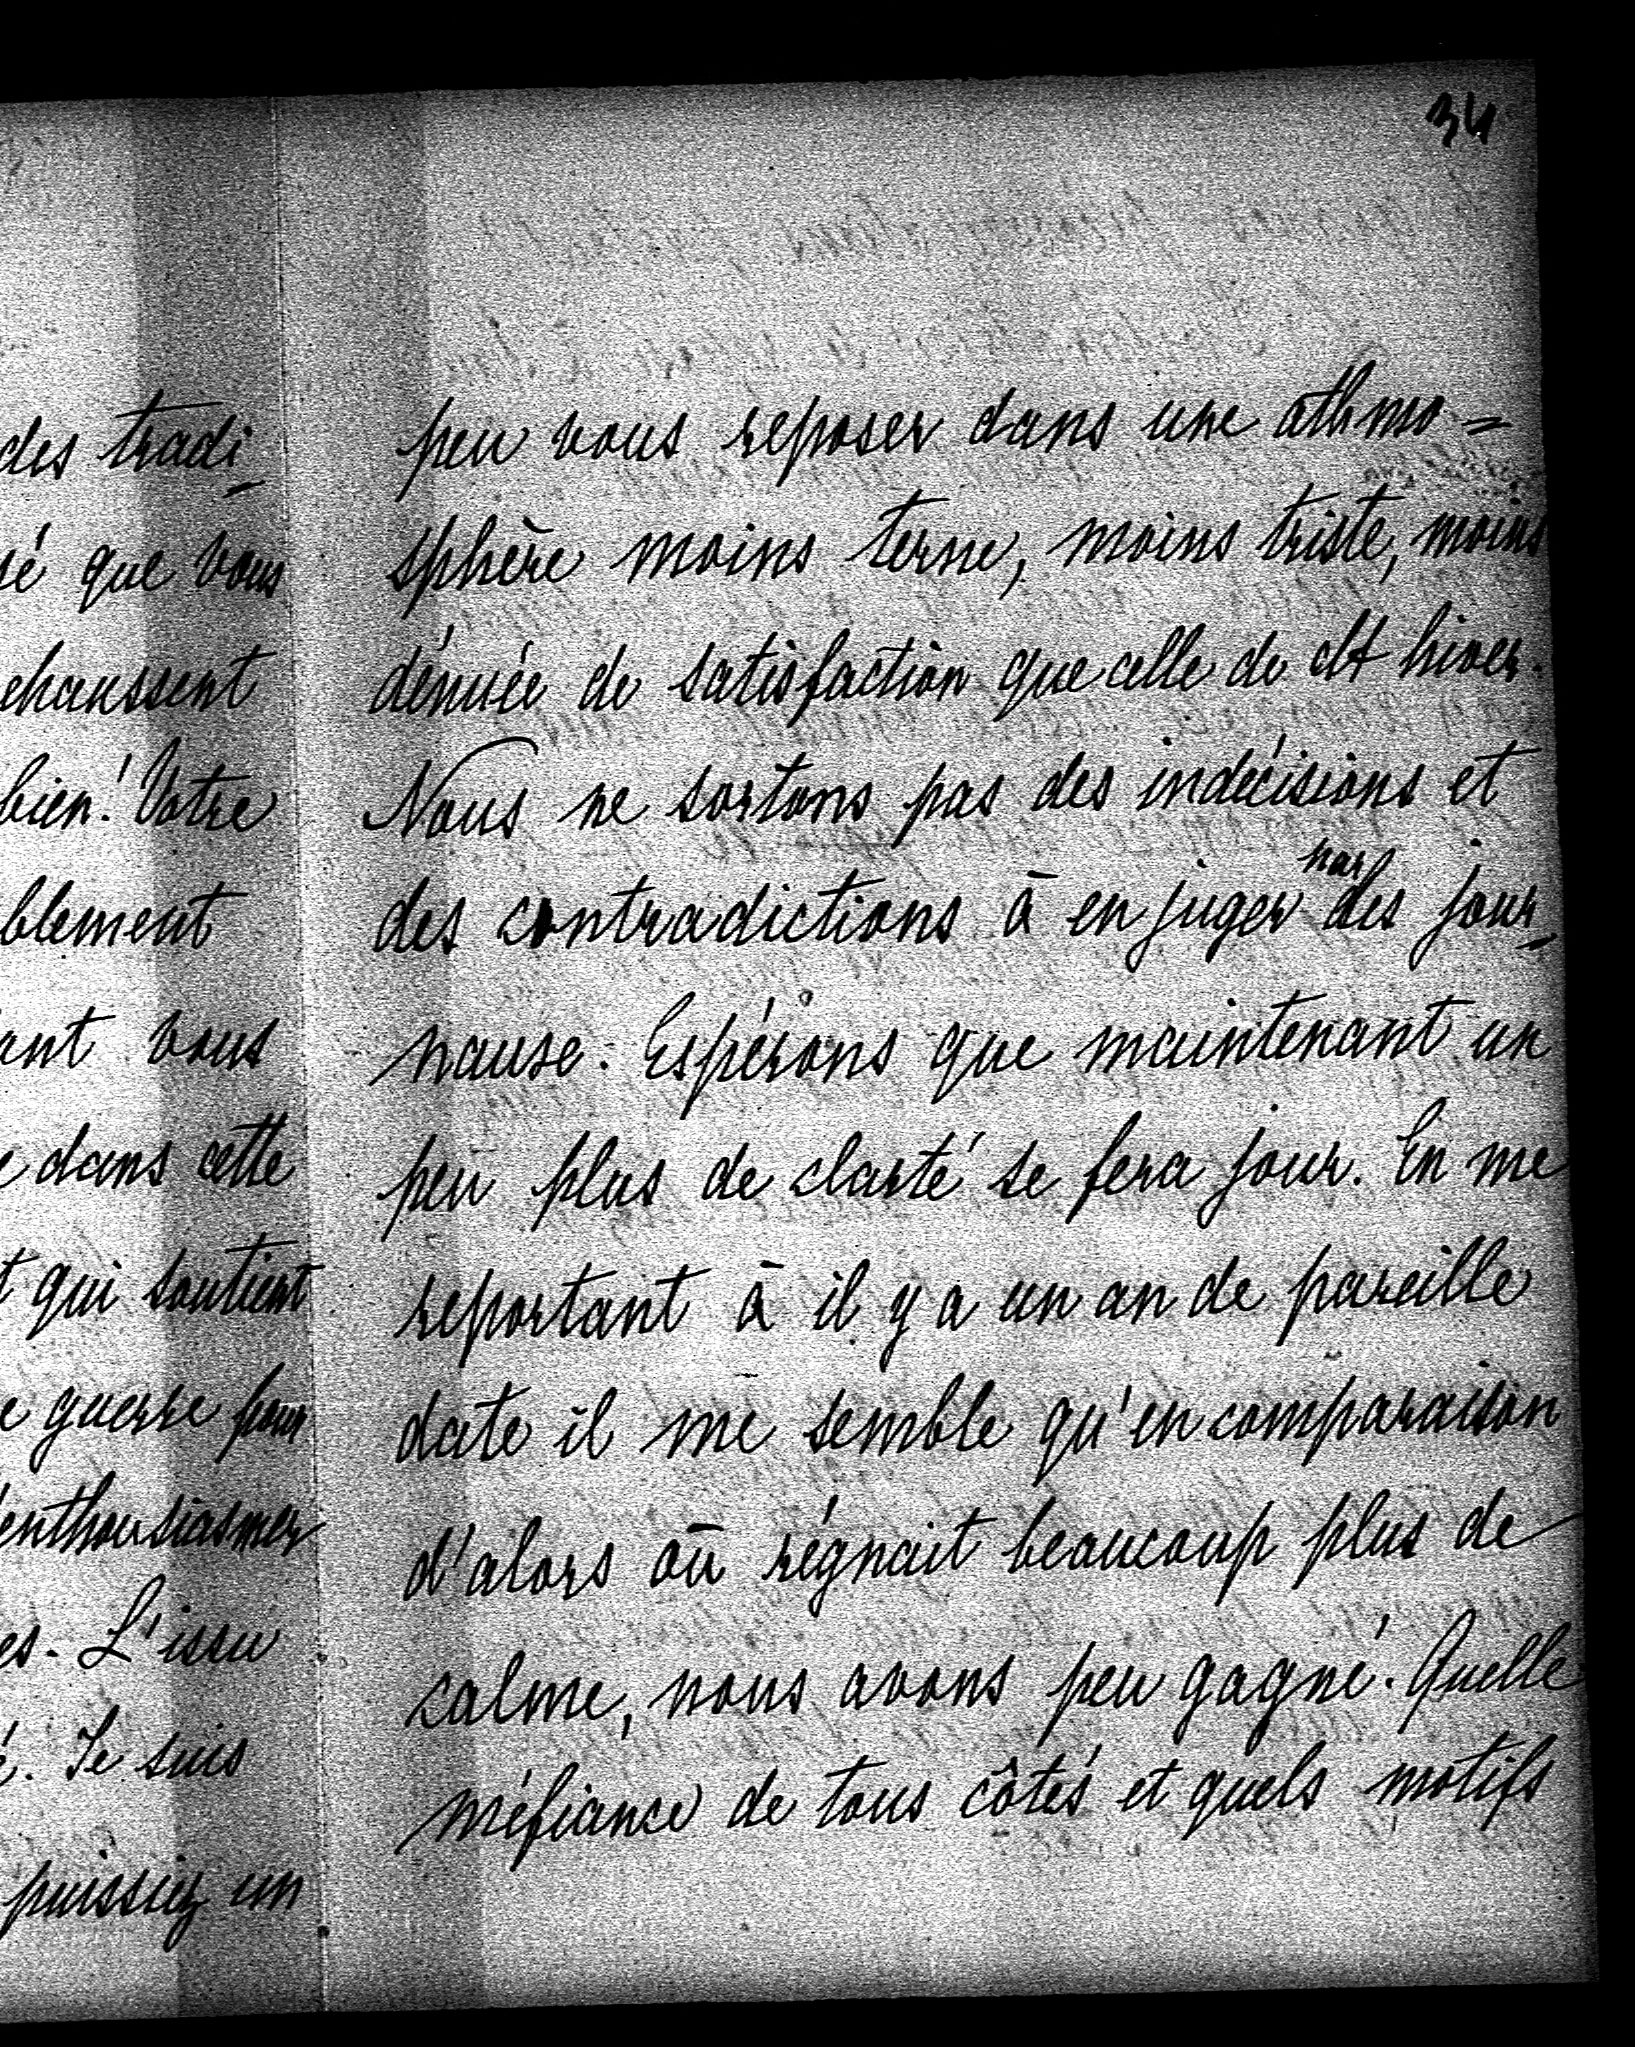 34
des tradi-
é que vous
ehaussent
bien! Votre
blement
ant vous
e dans cette
t qui soutient
e guerre pour
enthousiasmer
es. L'issu
é. Je suis
puissiez un
peu vous reposer dans une athmo=
sphère moins terne, moins triste, moins
dénuée de satisfaction que celle de cet hiver.
Nous ne sortons pas des indécisions et
des contradictions à en juger par des jour-
nause. Espérons que maintenant un
peu plus de clarté se fera jour. En me
reportant à il y a un an de pareille
date il me semble qu'en comparaison
d'alors où régnait beaucoup plus de
calme, nous avons peu gagné. Quelle
méfiance de tous côtés et quels motifs